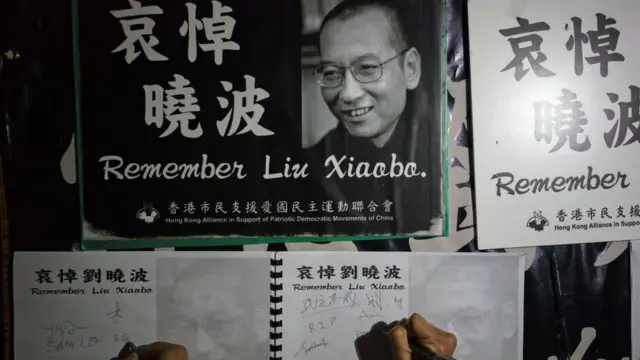 哀悼
曉波
Remember Liu Xiaobo.
香港市民支援愛國民主運動聯合會
Hong Kong Alliance in Support of Patriotic Democratic Movements of China
哀悼
曉波
Remember
香港市民支援
Hong Kong Alliance in Support of
哀悼劉曉波
Remember Liu Xiaobo.
哀悼劉曉波
Remember Liu Xiaobo.
R.I.P